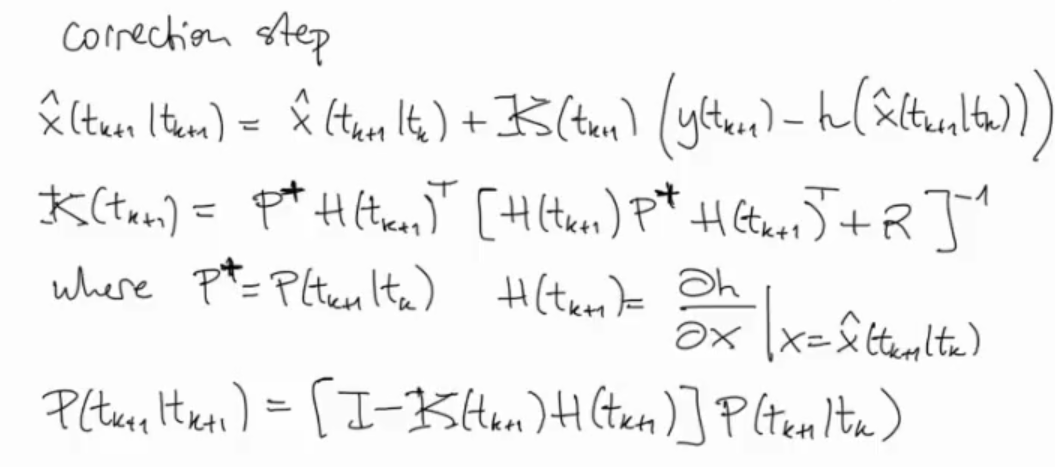 correction step
x̂(tₖ₊₁|tₖ₊₁) = x̂(tₖ₊₁|tₖ) + K(tₖ₊₁) (y(tₖ₊₁) − h(x̂(tₖ₊₁|tₖ)))
K(tₖ₊₁) = P⁺ H(tₖ₊₁)ᵀ [H(tₖ₊₁) P⁺ H(tₖ₊₁)ᵀ + R]⁻¹
where P⁺ = P(tₖ₊₁|tₖ) H(tₖ₊₁) = ∂h/∂x |x = x̂(tₖ₊₁|tₖ)
P(tₖ₊₁|tₖ₊₁) = [I − K(tₖ₊₁)H(tₖ₊₁)] P(tₖ₊₁|tₖ)